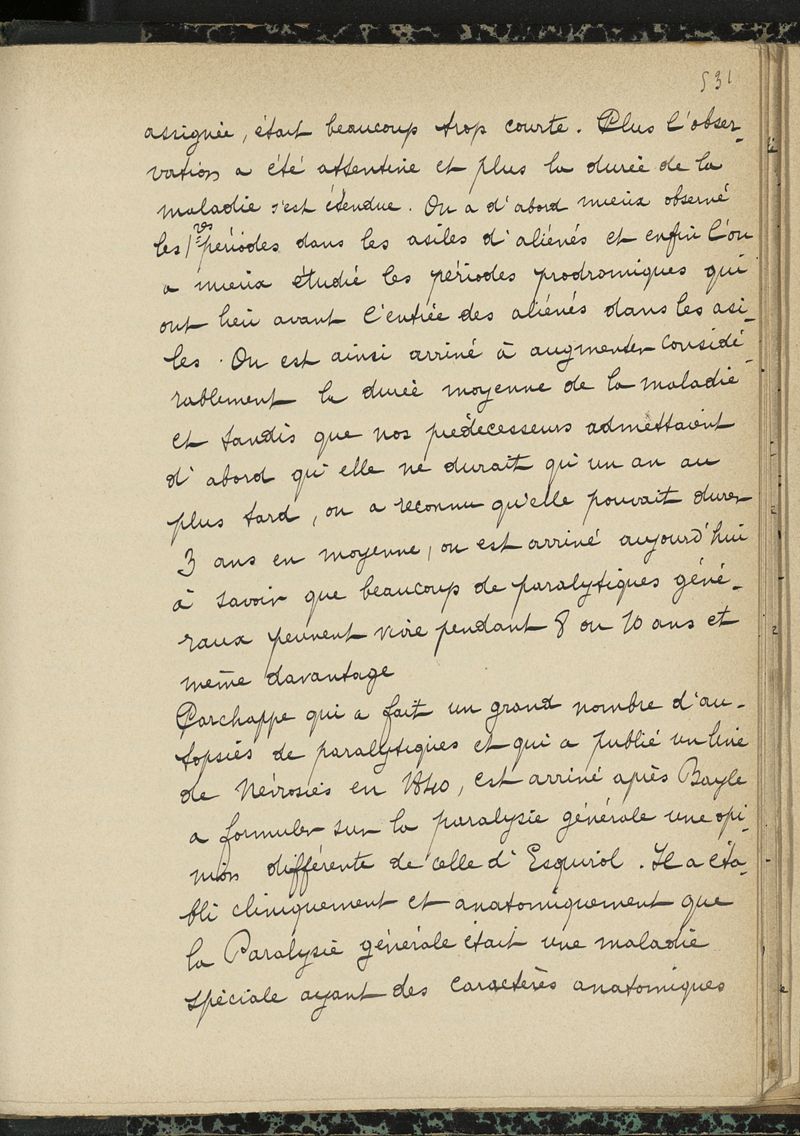 531
assignée, était beaucoup trop courte. Plus l'obser-
vation a été attentive et plus la durée de la
maladie s'est étendue. On a d'abord mieux observé
les 1res périodes dans les asiles d'aliénés et enfin l'on
a mieux étudié les périodes prodromiques qui
ont lieu avant l'entrée des aliénés dans les asi-
les. On est ainsi arrivé à augmenter considé-
rablement la durée moyenne de la maladie
et tandis que nos prédecesseurs admettaient
d'abord qu'elle ne durait qu'un an au
plus tard, on a reconnu qu'elle pouvait durer
3 ans en moyenne, on est arrivé aujourd'hui
à savoir que beaucoup de paralytiques géné-
raux peuvent vivre pendant 8 ou 10 ans et
même davantage
Parchappe qui a fait un grand nombre d'au-
topsies de paralytiques et qui a publié un livre
de Névrosies en 1840, est arrivé après Bayle
a formuler sur la paralysie générale une opi-
nion différente de celle d'Esquirol. Il a éta-
bli cliniquement et anatomiquement que
la Paralysie générale était une maladie
spéciale ayant des caractères anatomiques